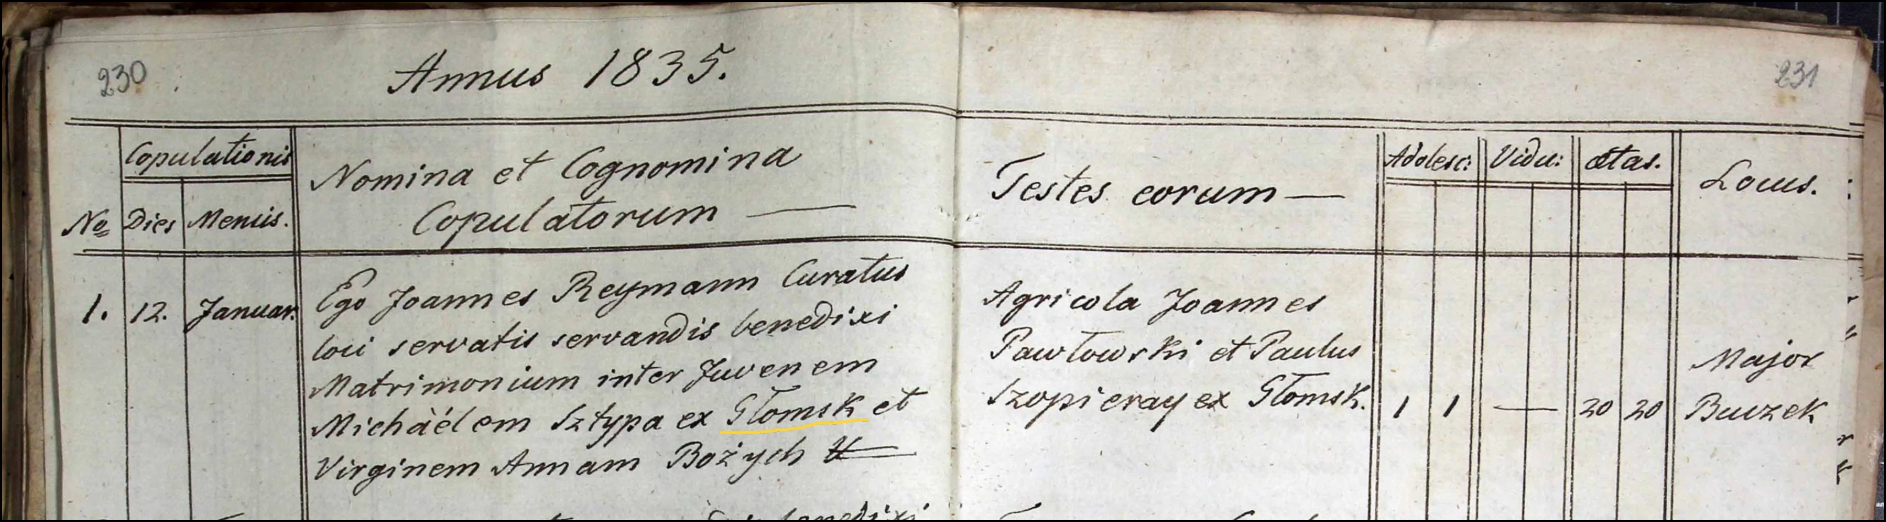 230
Annus 1835.
231
No Dies Mensis.
Copulationis
Nomina et Cognomina
Copulatorum —
Testes eorum —
Adolesc: Vidu: ætas. Locus.
1. 12. Januar.
Ego Joannes Reymann Curatus
loci servatis servandis benedixi
Matrimonium inter Juvenem
Michàélem Sztypa ex Głomsk et
Virginem Annam Bożych
Agricola Joannes
Pawłowski et Paulus
Szopieray ex Głomsk.
1 1 — 20 20
Major
Buczek
benedixi